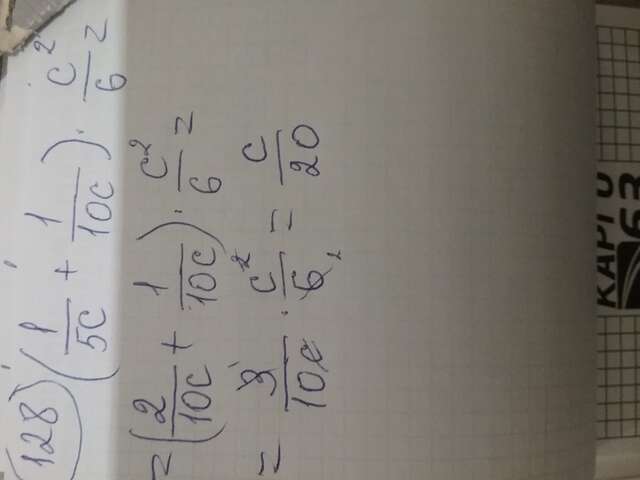 128) (1/5c + 1/10c) · c²/6 =
= (2/10c + 1/10c) · c²/6 =
= 3/10c · c²/6 = c/20
63